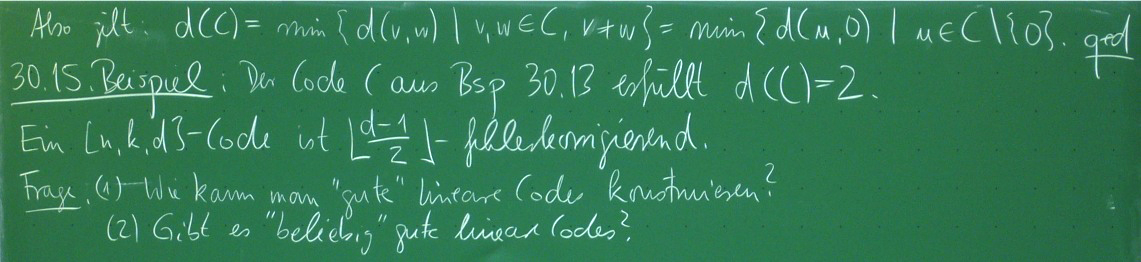 Also gilt: d(C) = min{d(v,w) | v,w ∈ C, v≠w} = min{d(u,0) | u ∈ C\{0}}. qed
30.15. Beispiel: Der Code C aus Bsp 30.13 erfüllt d(C)=2.
Ein [n,k,d]-Code ist ⌊(d-1)/2⌋-fehlerkorrigierend.
Frage: (1) Wie kann man "gute" lineare Codes konstruieren?
(2) Gibt es "beliebig" gute lineare Codes?